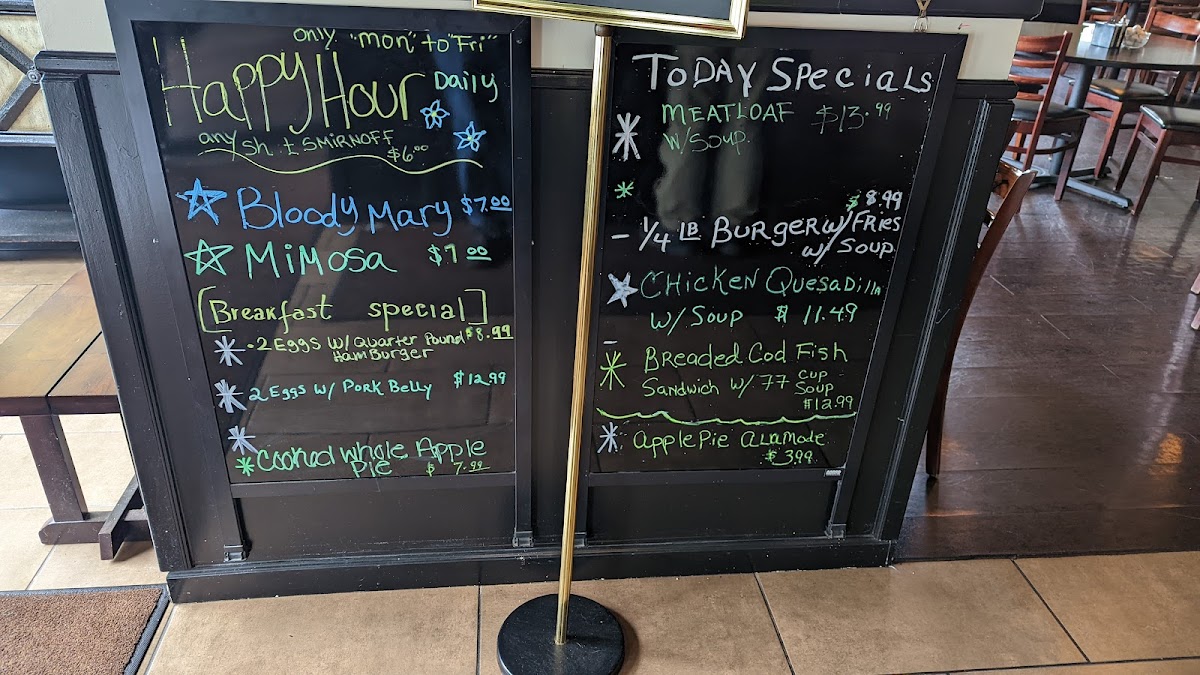 only "mon" to "Fri"
Happy Hour Daily
any sh t SMIRNOFF
$6.00
Bloody Mary $7.00
MiMosa $7.00
[Breakfast special]
• 2 Eggs W/ Quarter Pound $8.99
HamBurger
2 Eggs W/ Pork Belly $12.99
Cooked whole Apple
Pie $ 7.99
ToDAY SPeciaLS
MEATLOAF $13.99
W/Soup.
$8.99
- 1/4 LB BURGER W/ FRIES
W/ Soup
CHicKEN QuesaDilla
W/ Soup $ 11.49
- BReaded Cod Fish
Sandwich W/ 77 Cup
Soup
$12.99
Apple Pie ALaMode
$3.99